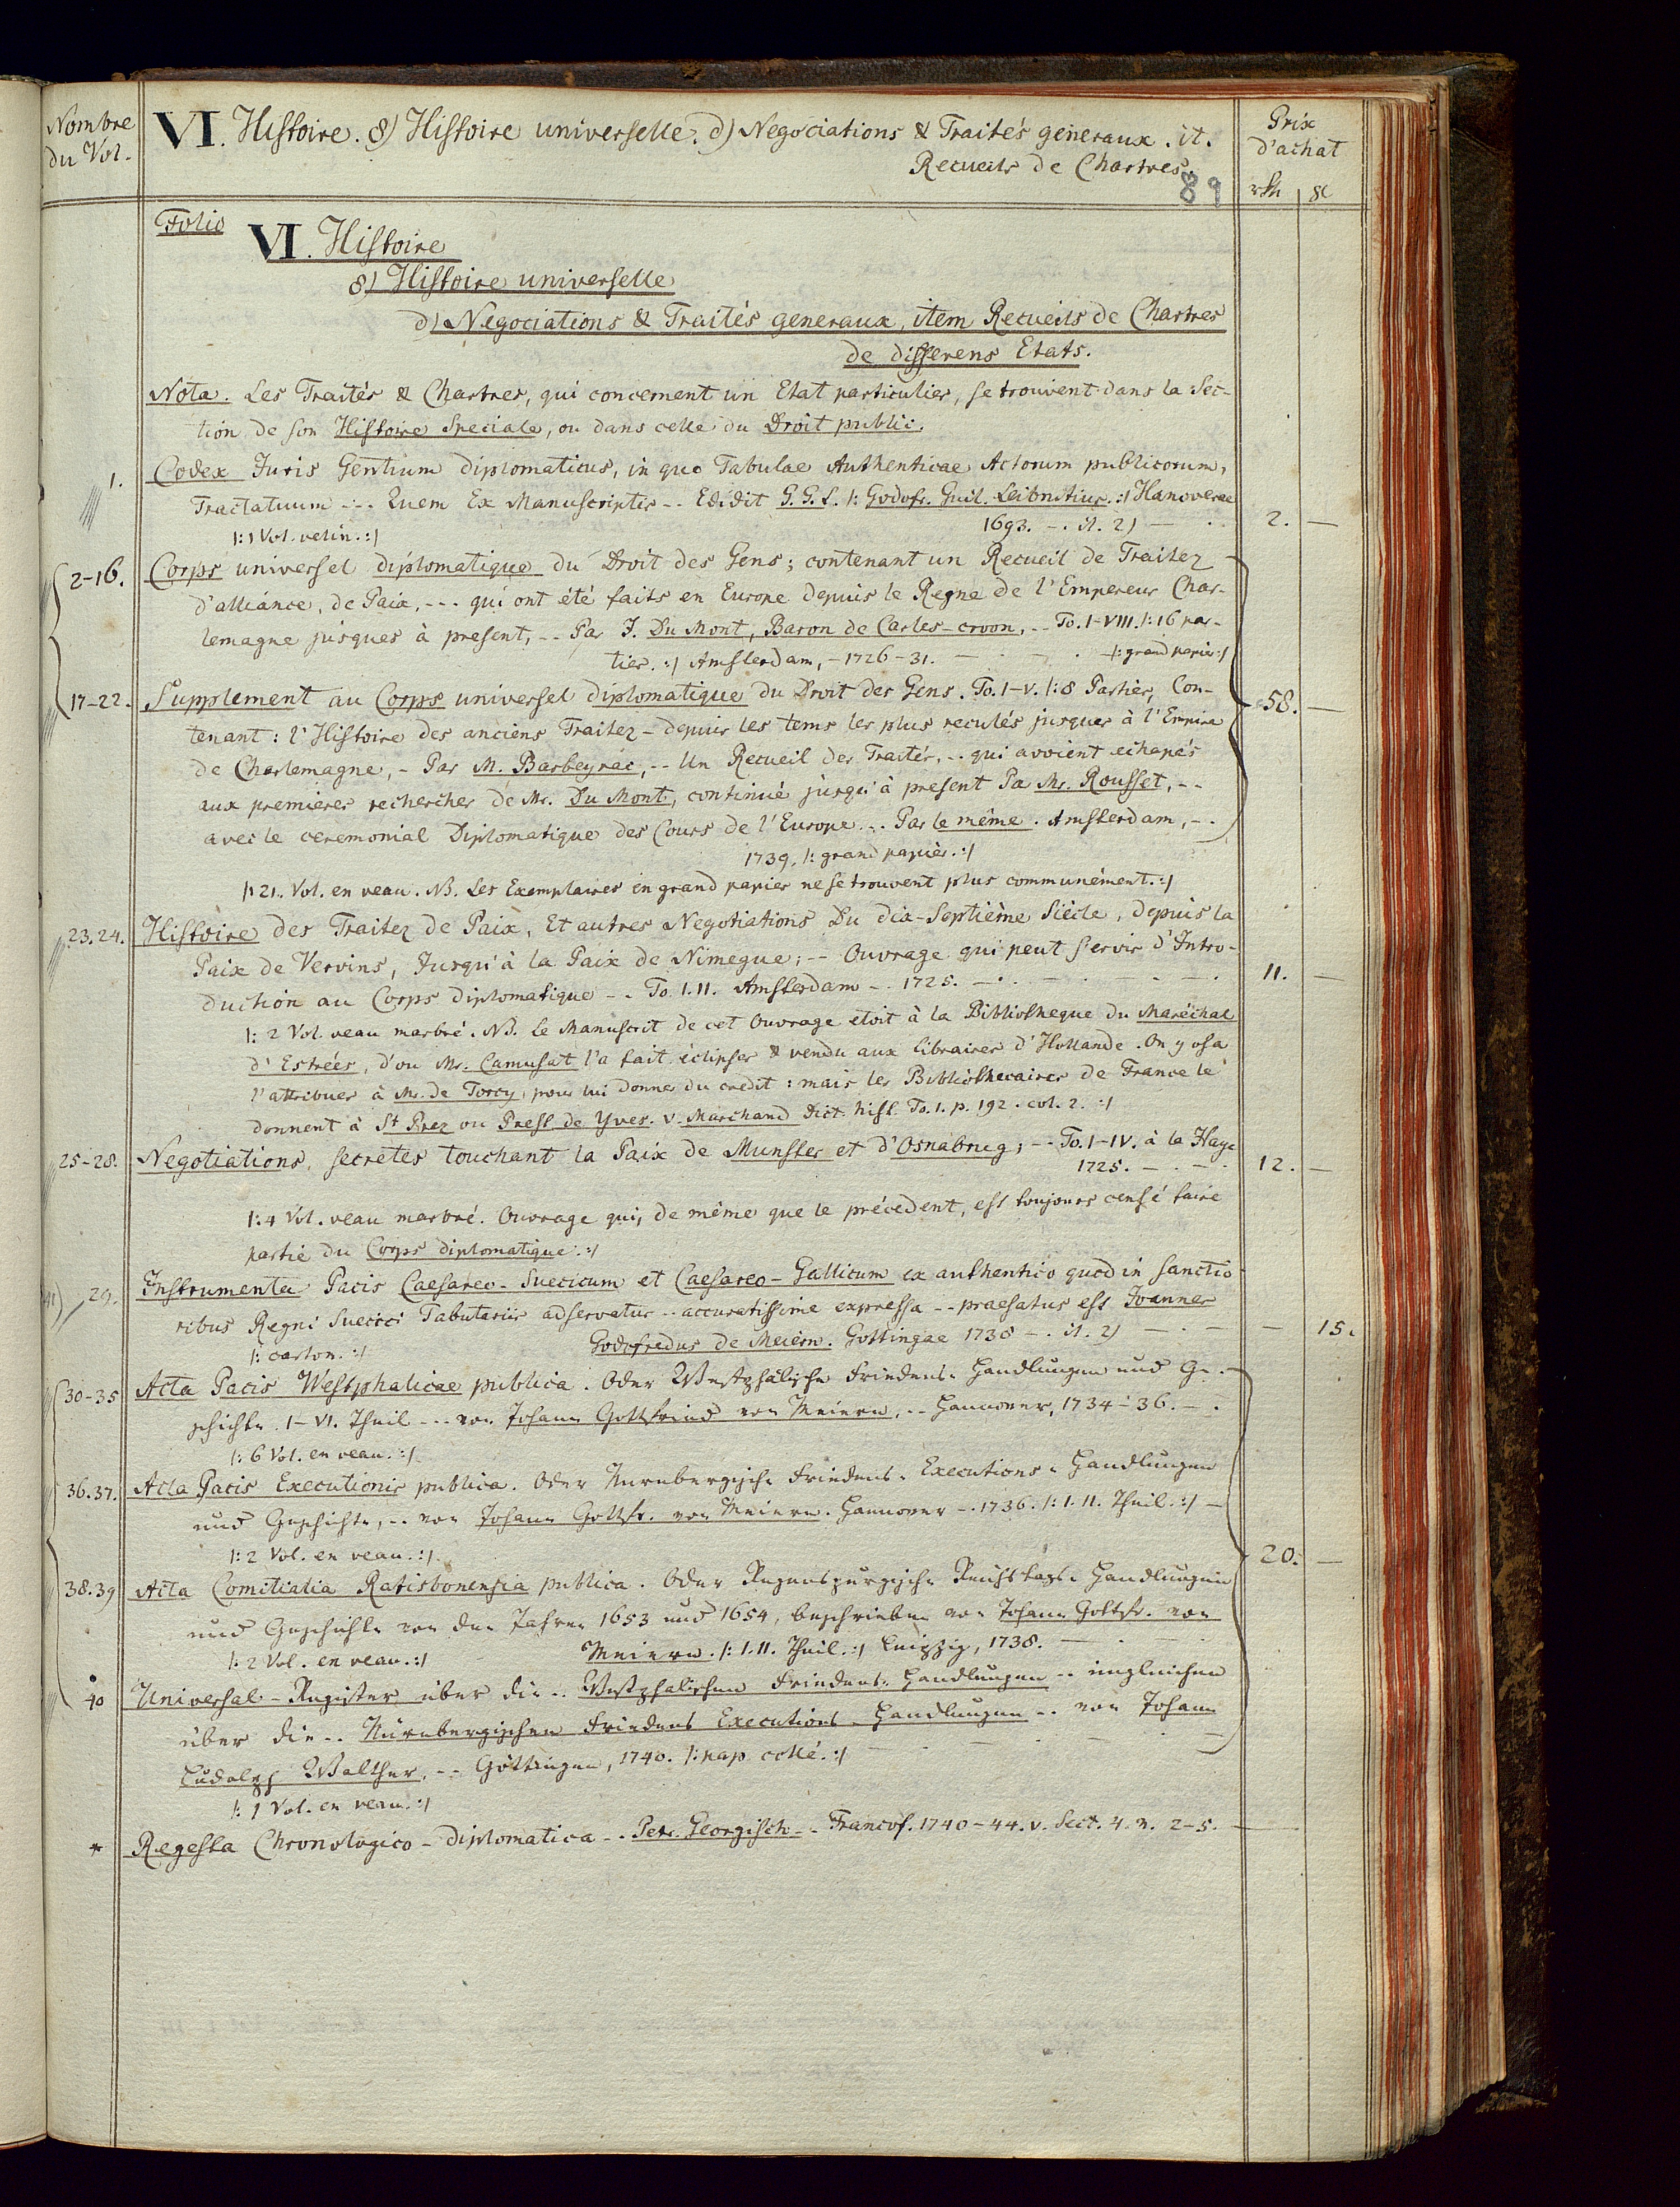 Nombre
du Vol.
VI. Histoire. 8) Histoire universelle. d) Negociations & Traités generaux. it.
Recueils de Chartres.
89
Prix
d'achat
Folio
VI. Histoire
8) Histoire universelle
d) Negociations & Traités generaux, item Recueils de Chartres
de differens Etats.
Nota. Les Traités & Chartres, qui concernent un Etat particulier, se trouvent dans la Sec-
tion de son Histoire Speciale, ou dans celle du Droit public.
1. Codex Juris Gentium diplomaticus, in quo Tabulae Authenticae Actorum publicorum,
Tractatuum --- Quem Ex Manuscriptis -- Edidit G. G. L. /: Godofr. Guil. Leibnitius. :/ Hanoverae
1693. -. it. 2) — . . 2. —
/: 1 Vol. velin. :/
2-16. Corps universel diplomatique du Droit des Gens; contenant un Recueil de Traitez
d'alliance, de Paix, --- qui ont été faits en Europe depuis le Regne de l'Empereur Char-
lemagne jusques à present, -- Par J. Du Mont, Baron de Carles-croon, -- To. I-VIII. /: 16 par-
ties. :/ Amsterdam, - 1726-31. — . — . /: grand papier :/
17-22. Supplement au Corps universel diplomatique du Droit des Gens. To. I-V. /: 8 Parties, Con- 58. —
tenant: l'Histoire des anciens Traitez - depuis les tems les plus reculés jusques à l'Empire
de Charlemagne, - Par M. Barbeyrac, -- Un Recueil des Traités, -- qui avoient echapés
aux premieres recherches de Mr. Du Mont, continué jusqu'à present Pa Mr. Rousset, --
avec le ceremonial Diplomatique des Cours de l'Europe... Par le même. Amsterdam, -.
1739. /: grand papier. :/
/: 21. Vol. en veau. NB. Les Exemplaires en grand papier ne se trouvent plus communément. :/
23.24. Histoire des Traitez de Paix, Et autres Negotiations Du dix-Septième Siècle, depuis la
Paix de Vervins, Jusqu'à la Paix de Nimegue; -- Ouvrage qui peut servir d'Intro-
duction au Corps diplomatique -- To. I. II. Amsterdam -. 1725. — . — . 11. —
/: 2 Vol. veau marbré. NB. Le Manuscrit de cet Ouvrage etoit à la Bibliotheque du Maréchal
d'Estrées, d'ou Mr. Camusat l'a fait éclipser & vendu aux libraires d'Hollande. On y osa
l'attribuer à Mr. de Torcy, pour lui donner du credit: mais les Bibliothecaires de France le
donnent à St Prez ou Prest de Yves. v. Marchand Dict. hist. To. 1. p. 192. col. 2. :/
25-28. Negotiations secretes touchant la Paix de Munster et d'Osnabrug; -- To. I-IV. à la Haye
1725. — . — . 12. —
/: 4 Vol. veau marbré. Ouvrage qui, de même que le précedent, est toujours censé faire
partie du Corps diplomatique. :/
29. Instrumenta Pacis Caesareo-Suecicum et Caesareo-Gallicum ex authentico quod in sanctio
ribus Regni Suecici Tabulariis adservatur -- accuratissime expressa -- praefatus est Joannes
Godofredus de Meiern. Gottingae 1738 -. it. 2) — . — — 15.
/: carton. :/
30-35 Acta Pacis Westphalicae publica. Oder Westphälische Friedens-Handlungen und Ge-
schichte. I-VI. Theil --- von Johann Gottfried von Meiern, -- Hannover, 1734-36. -.
/: 6 Vol. en veau. :/
36.37. Acta Pacis Executionis publica. Oder Nürnbergische Friedens-Executions-Handlungen
und Geschichte, -- von Johann Gottfr. von Meiern. Hannover -. 1736. /: I. II. Theil. :/ —
/: 2 Vol. en veau. :/ 20. —
38.39 Acta Comitialia Ratisbonensia publica. Oder Regenspurgische Reichstags-Handlungen
und Geschichte von den Jahren 1653 und 1654, beschrieben von Johann Gottfr. von
Meiern. /: I. II. Theil. :/ Leipzig, 1738. — . —
/: 2 Vol. en veau. :/
40 Universal-Register über die .. Westphälischen Friedens-Handlungen -- imgleichen
über die .. Nürnbergischen Friedens Executions-Handlungen -- von Johann
Ludolph Walther, -- Göttingen, 1740. /: pap. collé. :/
/: 1 Vol. en veau. :/
* Regesta Chronologico-diplomatica -. Petr. Georgisch -. Francof. 1740-44. v. Sect. 4. n. 2-5. —